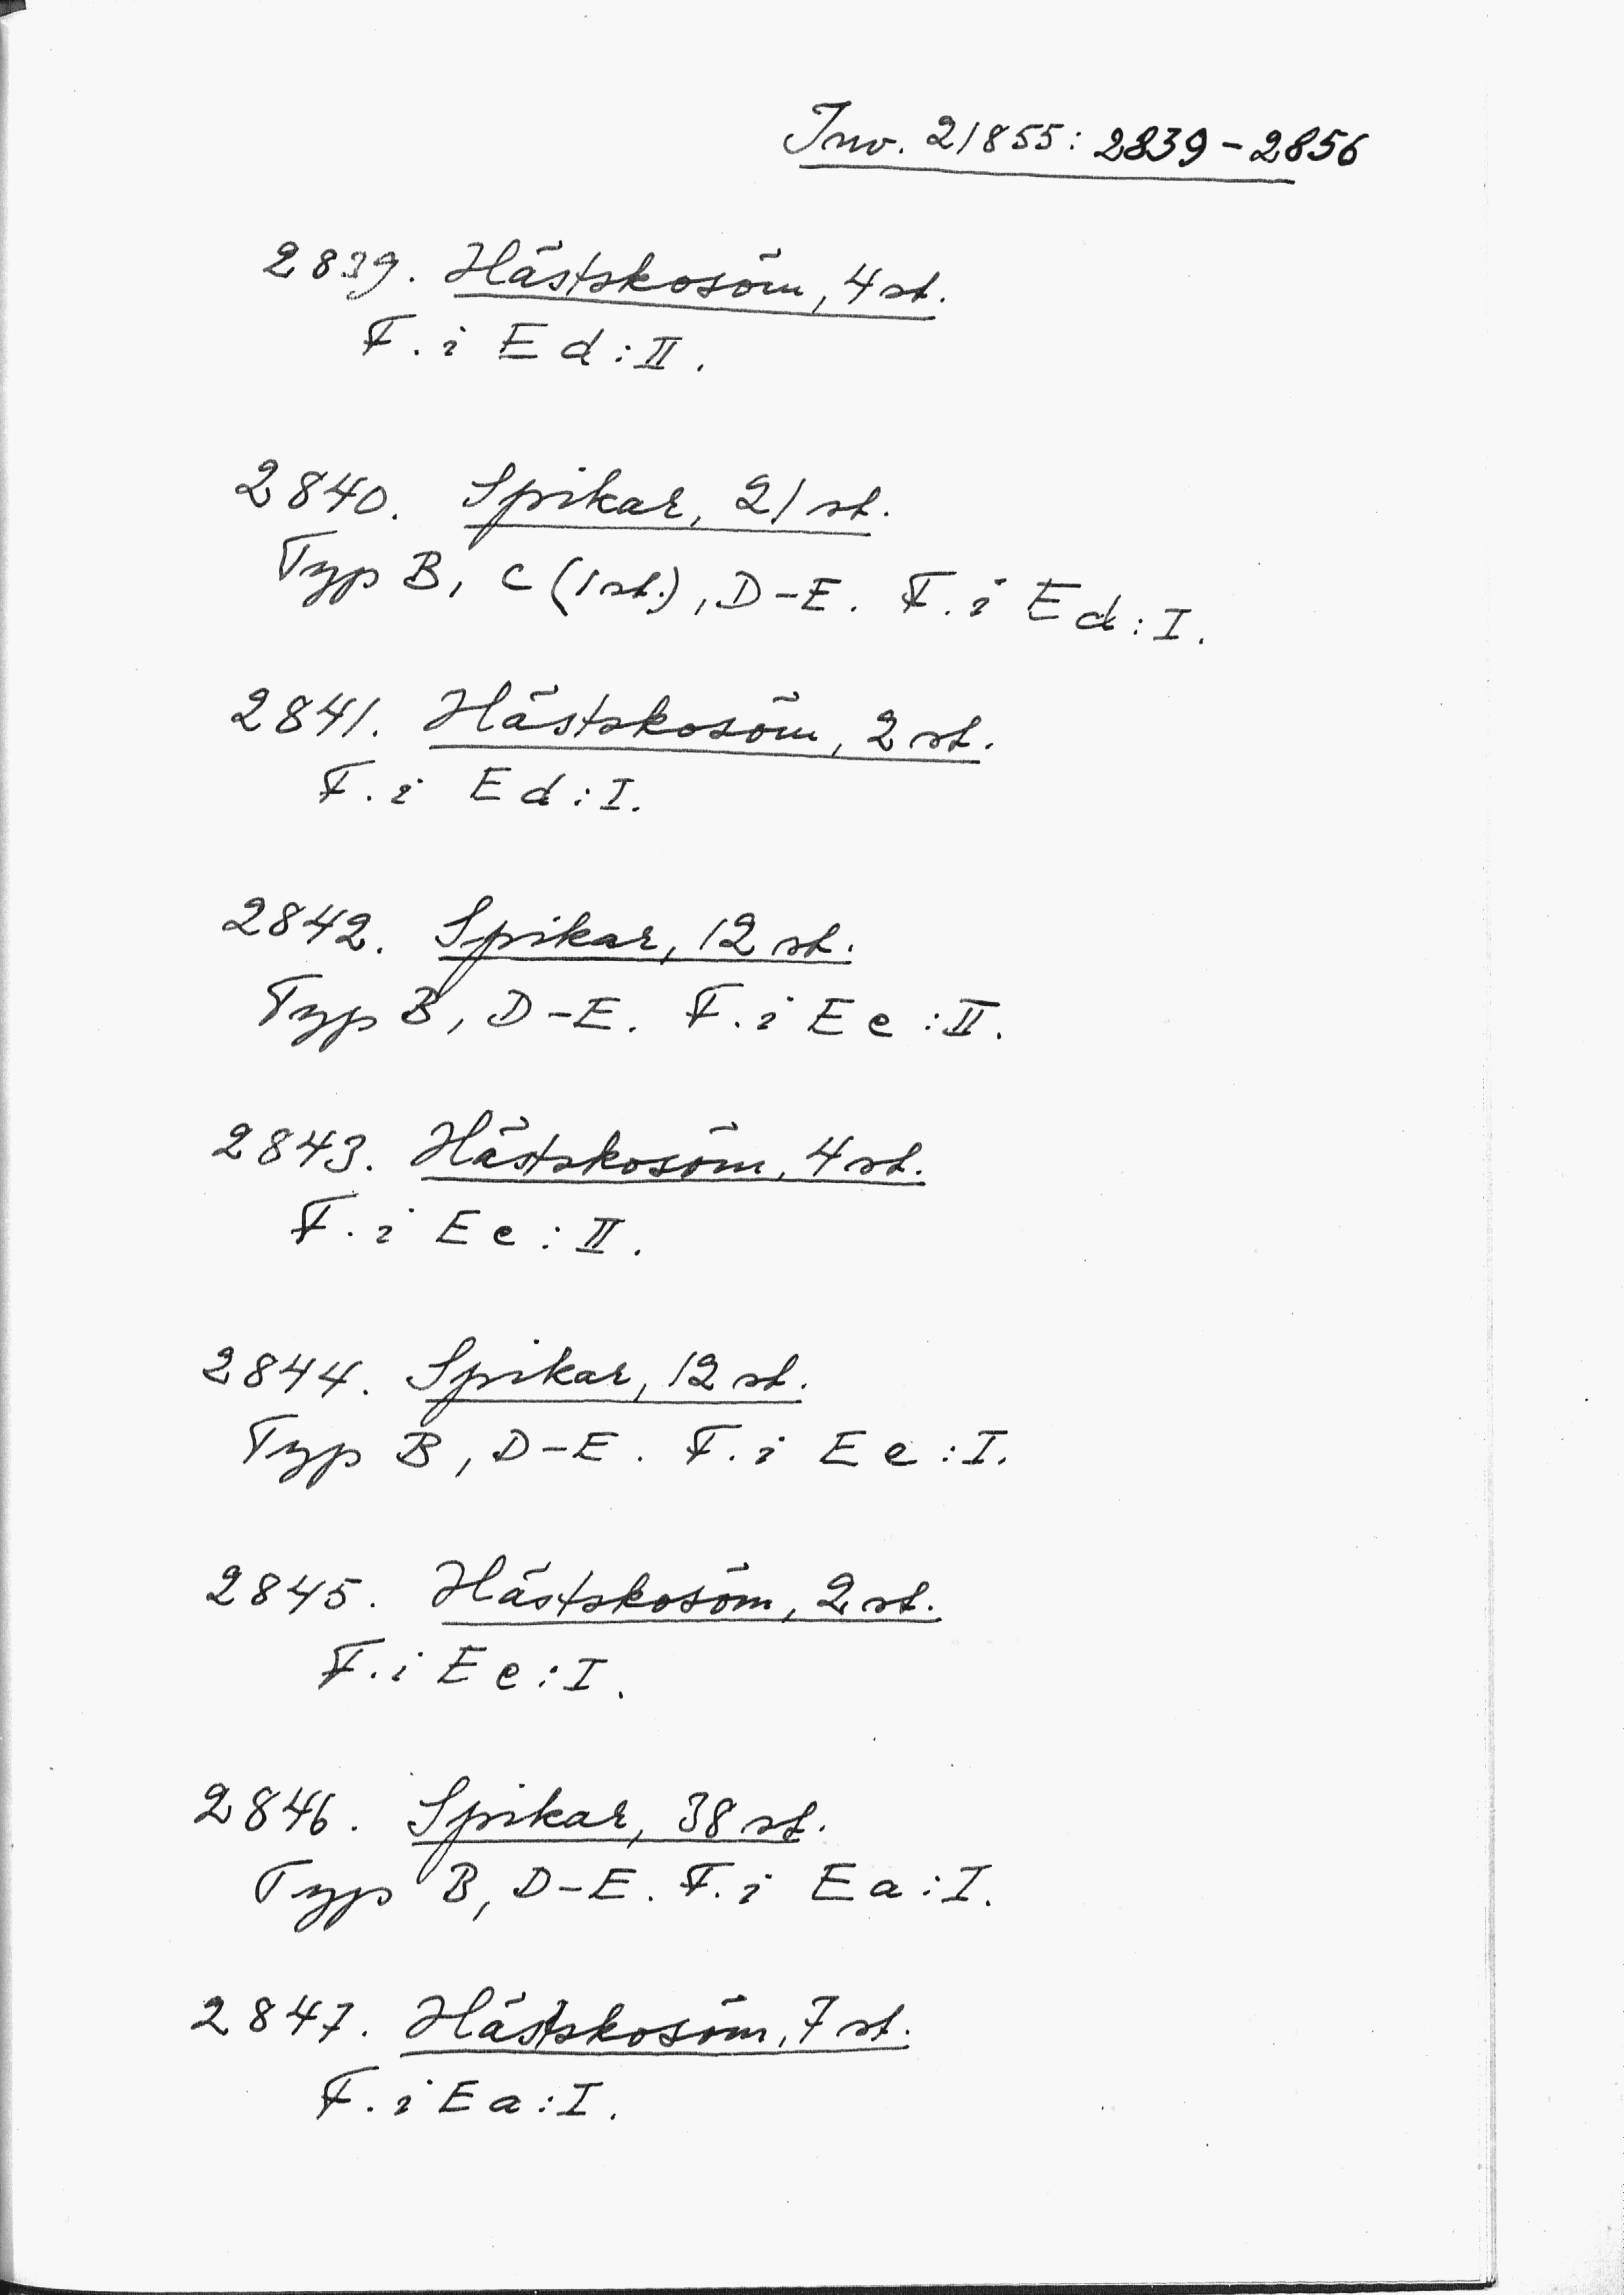 Inv. 21855: 2839-2856
2839. Hästskosöm, 4 st.
F. i Ed:II.
2840. Spikar, 21 st.
Typ B, C (1 st.), D-E. F. i Ed:I.
2841. Hästskosöm, 2 st.
F. i Ed:I.
2842. Spikar, 12 st.
Typ B, D-E. F. i Ee:II.
2843. Hästskosöm, 4 st.
F. i Ee:II.
2844. Spikar, 12 st.
Typ B, D-E. F. i Ee:I.
2845. Hästskosöm, 2 st.
F. i Ee:I.
2846. Spikar, 38 st.
Typ B, D-E. F. i Ea:I.
2847. Hästskosöm, 7 st.
F. i Ea:I.